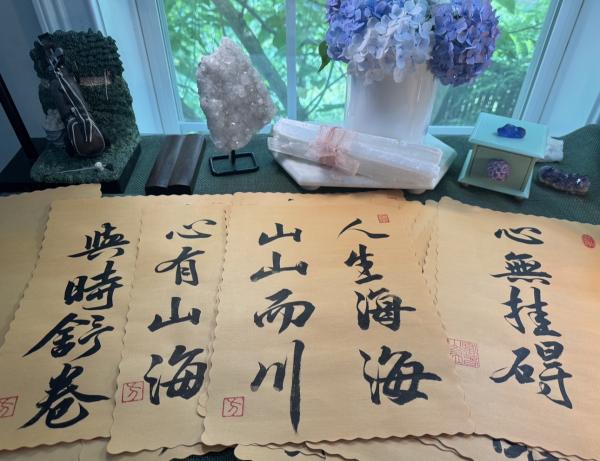 心無挂碍
人生海海
山山而川
心有山海
與時舒卷